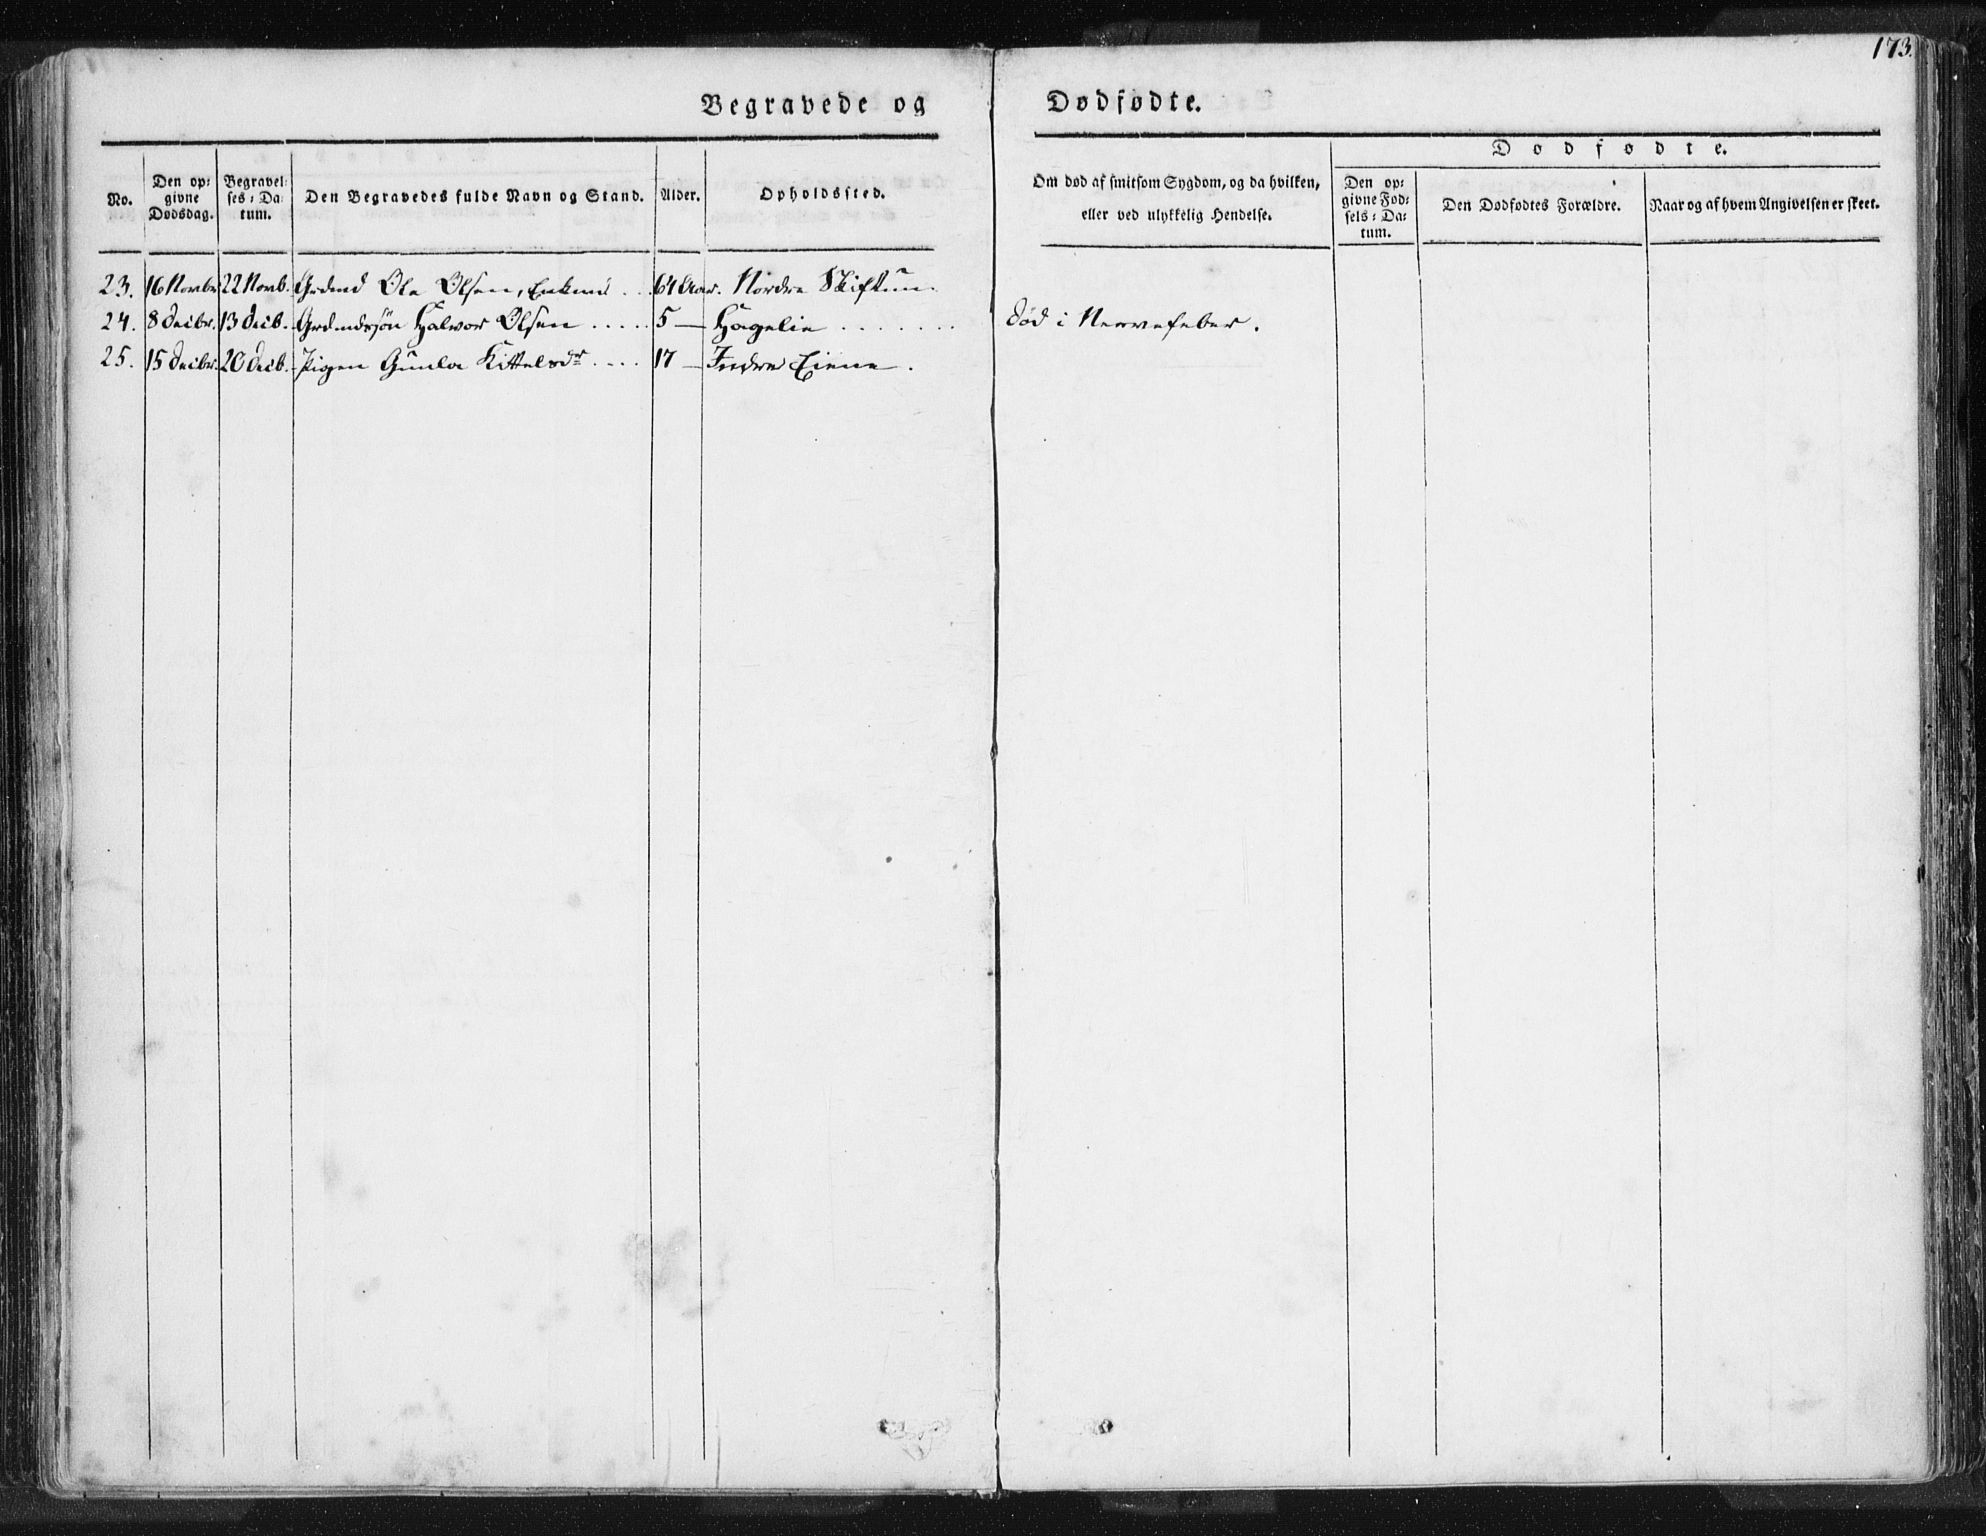 173.
Begravede og Dødfødte.
Dødfødte.
No.
Den op=
givne
Dødsdag.
Begravel=
ses=Da=
tum.
Den Begravedes fulde Navn og Stand.
Alder.
Opholdssted.
Om død af smitsom Sygdom, og da hvilken,
eller ved ulykkelig Hendelse.
Den op=
givne Fød=
sels=Da=
tum.
Den Dødfødtes Forældre.
Naar og af hvem Angivelsen er skeet.
23. 16 Novbr 22 Novb. Grdmd Ole Olsen, Enkem. 64 Aar. Nordre Skiftun.
24. 8 Decbr. 13 Decb. Grdmdssøn Halvor Olsen ..... 5 — Hagelie ....... Død i Nervefeber.
25. 15 Decbr. 20 Decb. Pigen Gunlor Kittelsdr .... 17 — Indre Eiene.